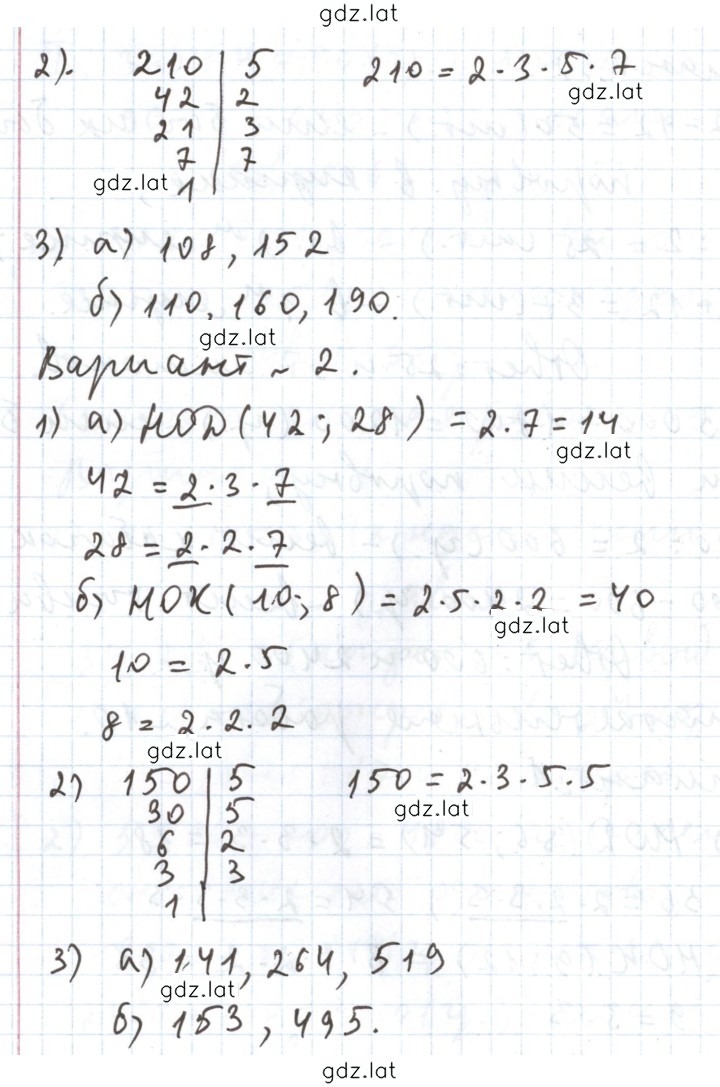 gdz.lat
2). 210 | 5 210 = 2·3·5·7
42 | 2 gdz.lat
21 | 3
7 | 7
gdz.lat 1 |
3) а) 108, 152
б) 110, 160, 190.
gdz.lat
Вариант ~ 2.
1) а) НОД (42; 28) = 2·7 = 14
gdz.lat
42 = 2·3·7
28 = 2·2·7
б) НОК (10; 8) = 2·5·2·2 = 40
gdz.lat
10 = 2·5
8 = 2·2·2
gdz.lat
2) 150 | 5 150 = 2·3·5·5
30 | 5 gdz.lat
6 | 2
3 | 3
1 |
3) а) 141, 264, 519
gdz.lat
б) 153, 495.
gdz.lat